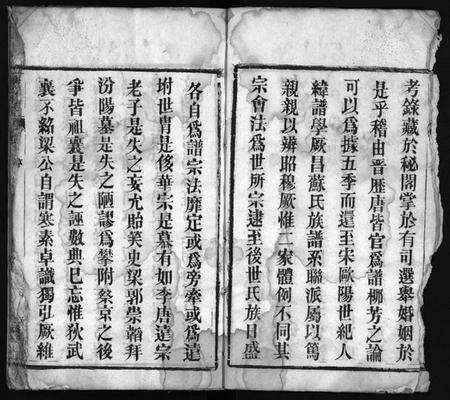 考錄藏於秘閣掌於有司選舉婚姻於
是乎稽由晋歷唐皆官爲譜柳芳之論
可以爲據五季而還至宋歐陽世紀人
緯譜學厥昌蘇氏族譜系聯派屬以篤
親親以辨昭穆厥惟二家體例不同其
宗會法爲世所宗逮至後世氏族日盛
各自爲譜宗法靡定或爲旁牽或爲遠
坿世胄是侈華宗是慕有如李唐遠宗
老子是失之妄尤貽笑史梁郭崇韜拜
汾陽墓是失之陋謬爲攀附蔡京之後
爭皆祖襄是失之誣數典已忘惟狄武
襄不紹梁公自謂寒素卓識獨弘厥維